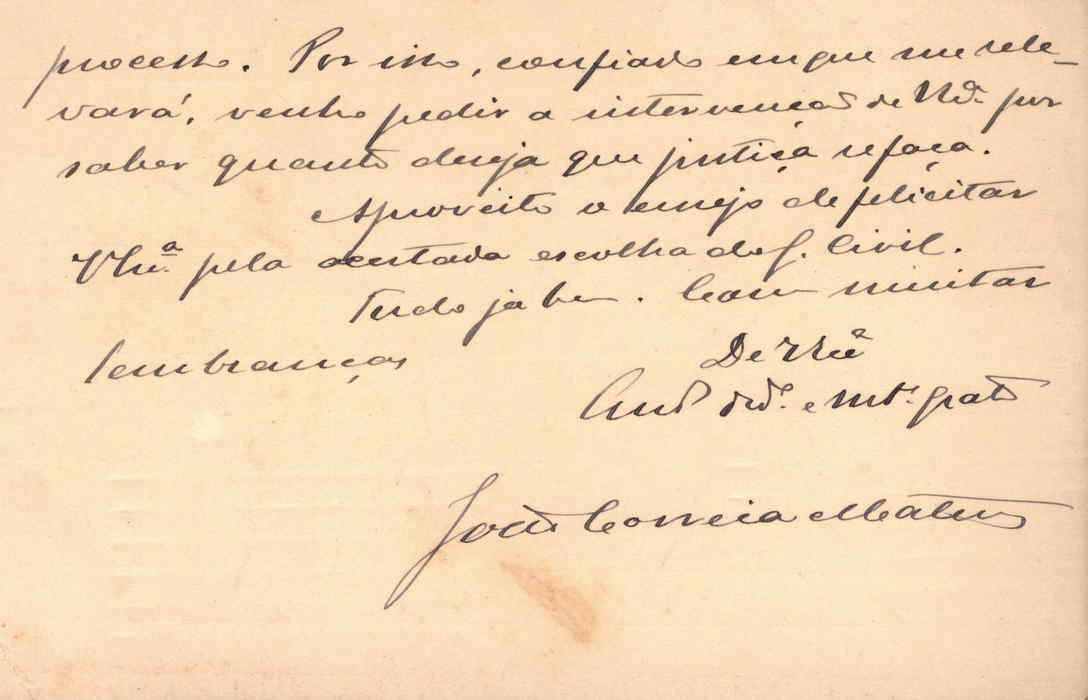 processo. Por isso, confiado em que me rele-
vará, venho pedir a intervenção de V. por
saber quanto deseja que justiça se faça.
Aproveito o ensejo de felicitar
V. Ex.ª pela acertada escolha do G. Civil.
Tudo já bem. Com muitas
lembranças
De V. Ex.ª
Am.º e mt.º grato
João Correia Mateus